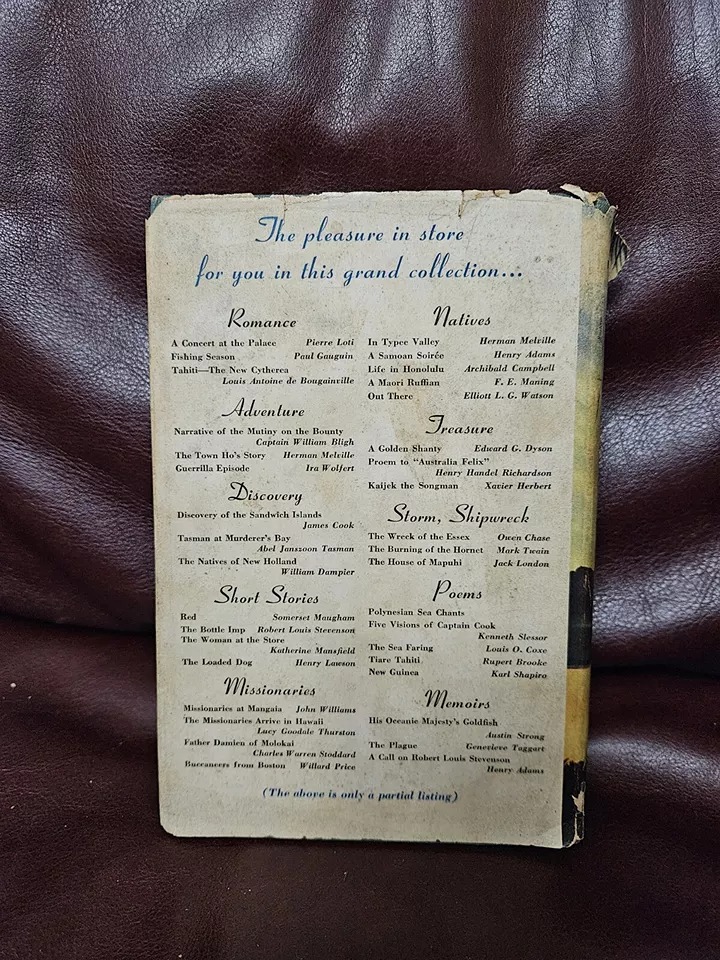 The pleasure in store
for you in this grand collection...
Romance
A Concert at the Palace Pierre Loti
Fishing Season Paul Gauguin
Tahiti—The New Cytherea
Louis Antoine de Bougainville
Adventure
Narrative of the Mutiny on the Bounty
Captain William Bligh
The Town Ho's Story Herman Melville
Guerrilla Episode Ira Wolfert
Discovery
Discovery of the Sandwich Islands
James Cook
Tasman at Murderer's Bay
Abel Janszoon Tasman
The Natives of New Holland
William Dampier
Short Stories
Red Somerset Maugham
The Bottle Imp Robert Louis Stevenson
The Woman at the Store
Katherine Mansfield
The Loaded Dog Henry Lawson
Missionaries
Missionaries at Mangaia John Williams
The Missionaries Arrive in Hawaii
Lucy Goodale Thurston
Father Damien of Molokai
Charles Warren Stoddard
Buccaneers from Boston Willard Price
Natives
In Typee Valley Herman Melville
A Samoan Soirée Henry Adams
Life in Honolulu Archibald Campbell
A Maori Ruffian F. E. Maning
Out There Elliott L. G. Watson
Treasure
A Golden Shanty Edward G. Dyson
Proem to "Australia Felix"
Henry Handel Richardson
Kaijek the Songman Xavier Herbert
Storm, Shipwreck
The Wreck of the Essex Owen Chase
The Burning of the Hornet Mark Twain
The House of Mapuhi Jack London
Poems
Polynesian Sea Chants
Five Visions of Captain Cook
Kenneth Slessor
The Sea Faring Louis O. Coxe
Tiare Tahiti Rupert Brooke
New Guinea Karl Shapiro
Memoirs
His Oceanic Majesty's Goldfish
Austin Strong
The Plague Genevieve Taggart
A Call on Robert Louis Stevenson
Henry Adams
(The above is only a partial listing)